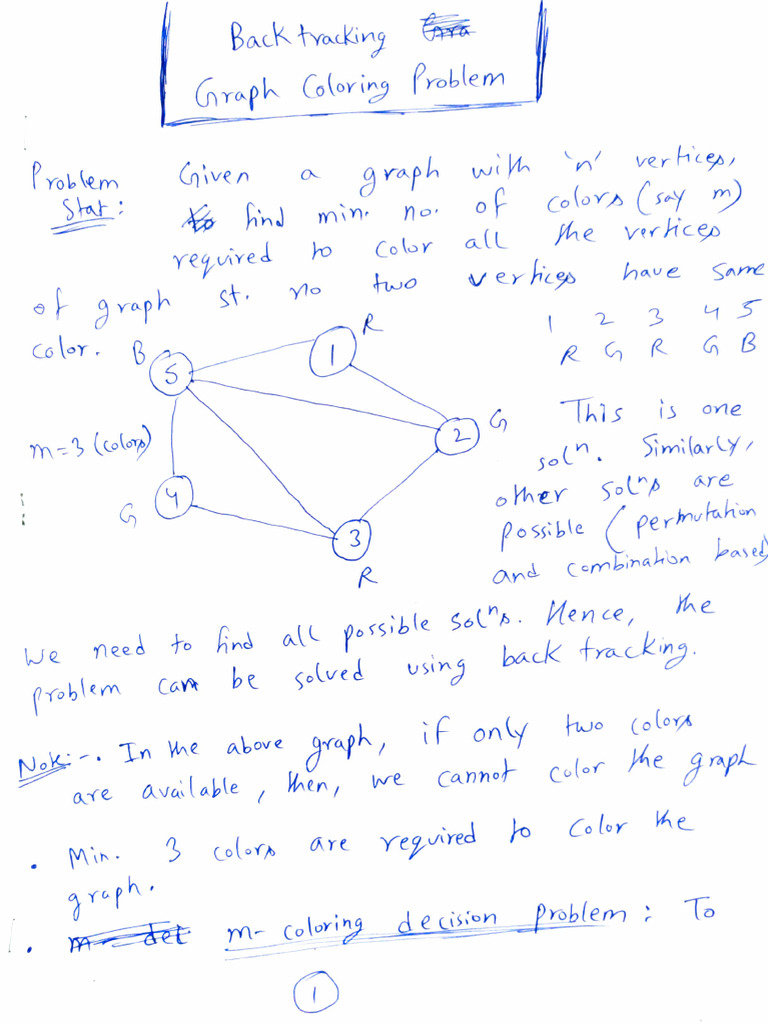 Backtracking
Graph Coloring Problem
Problem Given a graph with 'n' vertices,
Stat: find min. no. of colors (say m)
required to color all the vertices
of graph st. no two vertices have same
color.
1 2 3 4 5
R G R G B
B 5
1 R
2 G
m=3 (colors)
4 G
3 R
This is one
solⁿ. Similarly,
other solⁿs are
possible (permutation
and combination based)
We need to find all possible solⁿs. Hence, the
problem can be solved using back tracking.
Note:-. In the above graph, if only two colors
are available, then, we cannot color the graph
. Min. 3 colors are required to color the
graph.
. m- coloring decision problem: To
1